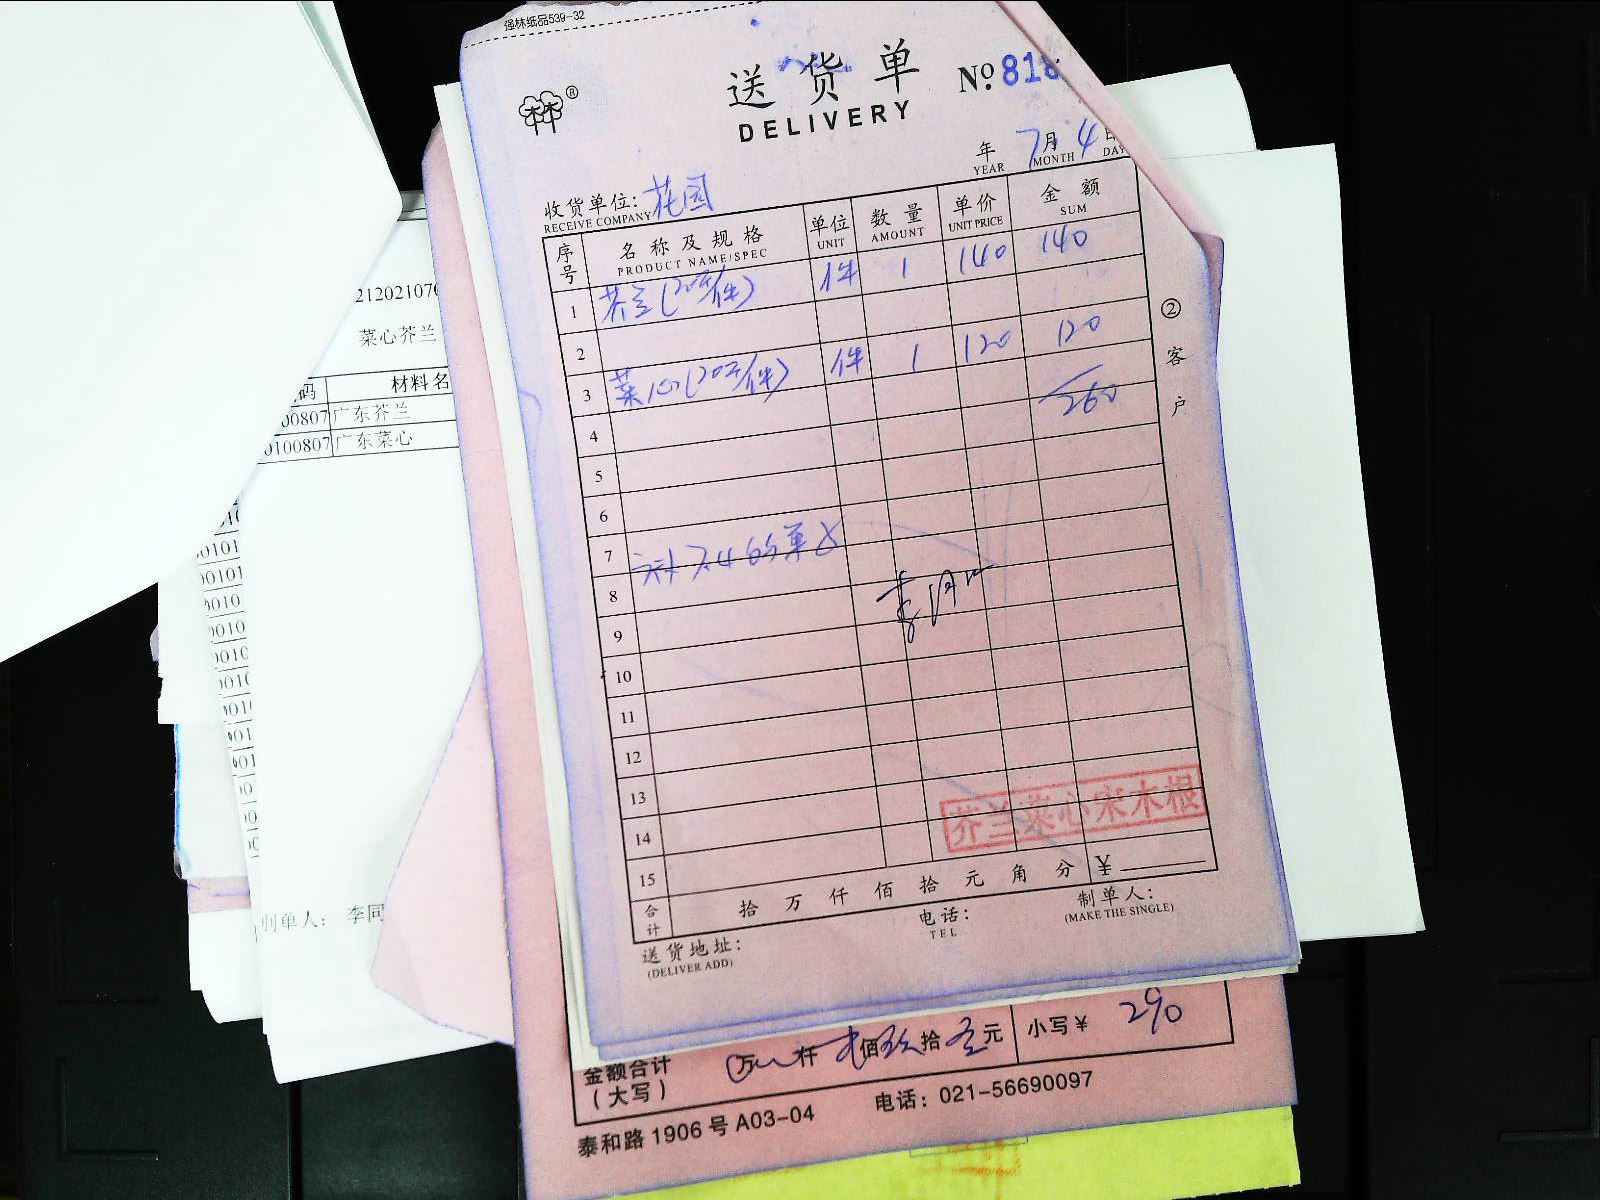 强林纸品539-32
送货单
DELIVERY
No. 818
年 7月 4日
YEAR MONTH DAY
收货单位: 花园
RECEIVE COMPANY
序号 名称及规格 单位 数量 单价 金额
PRODUCT NAME/SPEC UNIT AMOUNT UNIT PRICE SUM
1 芥兰(20斤/件) 件 1 140 140
2
3 菜心(20斤/件) 件 1 120 120
260
4
5
6
7
8
9
10
11
12
13
14
15
芥兰菜心宋木根
合计 拾 万 仟 佰 拾 元 角 分 ¥
送货地址:
(DELIVER ADD)
电话:
TEL
制单人:
(MAKE THE SINGLE)
②客户
212021070
菜心芥兰
码 材料名
00807 广东芥兰
0100807 广东菜心
制单人: 李同
金额合计
(大写)
万 仟 佰 拾 元 小写¥ 290
泰和路1906号A03-04 电话: 021-56690097